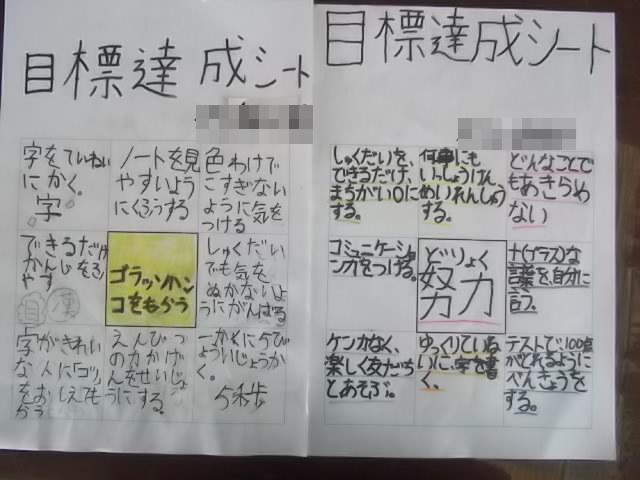 目標達成シート
字をていねい
にかく。
字
ノートを見
やすいよう
にくふうする
色わけで
こすぎない
ように気を
つける
できるだけ
かんじを
やす
漢
ゴラッソハン
コをもらう
しゅくだい
でも気を
ぬかないよ
うにがんばる
字がきれい
な人に
をおしえても
えんぴつ
の力かげ
んをせいじょ
うにする。
一かくに5び
ょういじょうか
く。
5秒
目標達成シート
しゅくだいを、
できるだけ、
まちがい0に
する。
何事にも
いっしょうけん
めいれんしゅう
する。
どんなことで
もあきらめ
ない
コミュニケーショ
ン力をつける。
どりょく
努力
+(プラス)な
言葉を、自分に
言う。
ケンカなく、
楽しく友だち
とあそぶ。
ゆっくりていね
いに、字を書
く。
テストで、100点
がとれるように
べんきょうを
する。